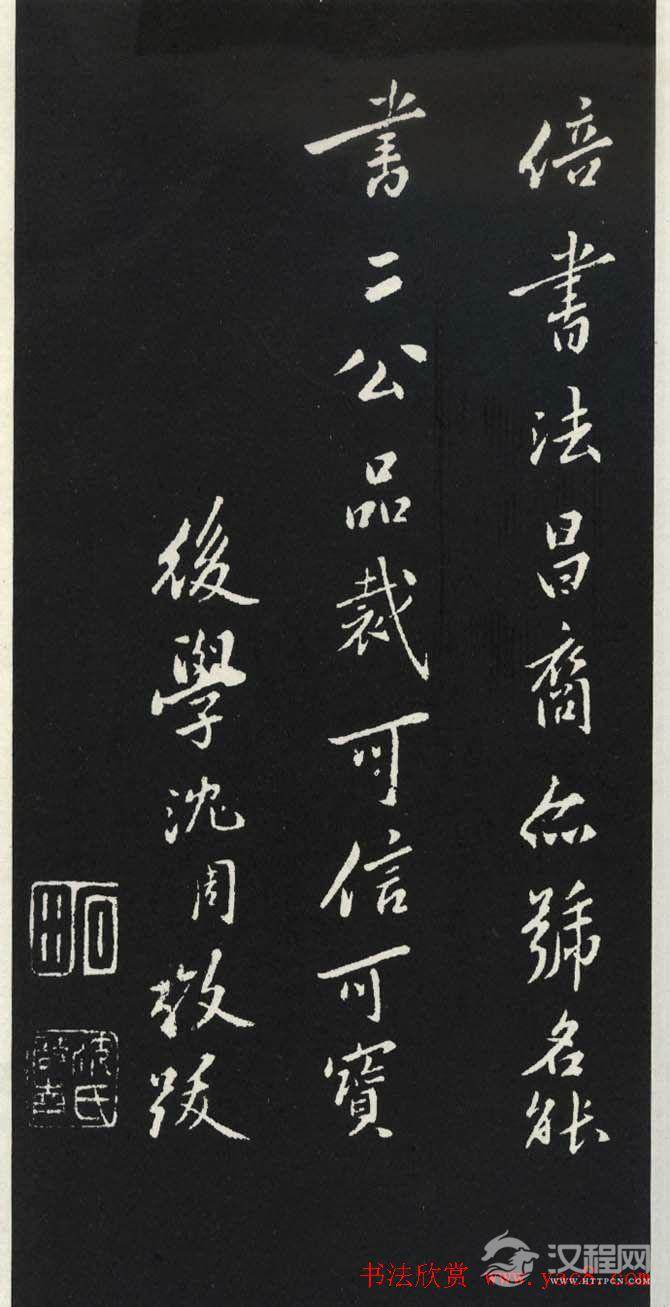 倍書法昌裔亦號名能
書二公品裁可信可寶
後學沈周敬跋
石田
汉程网
WWW.HTTPCN.COM
书法欣赏